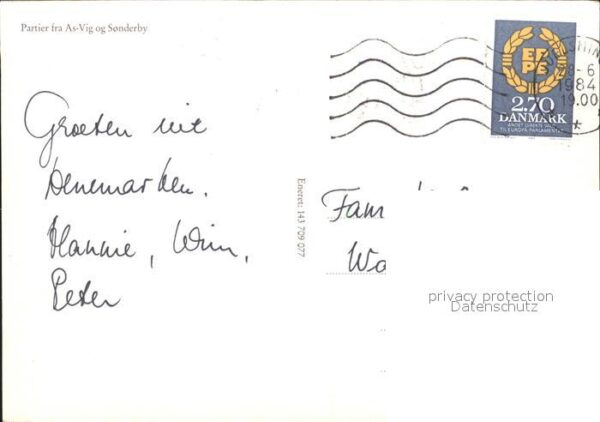 Partier fra As-Vig og Sønderby
EF
PE
2.70
DANMARK
ANDET DIREKTE VALG
TIL EUROPA-PARLAMENTET
28-6
1984
19.00
*
Groeten uit
Denemarken.
Hannie, Wim,
Peter
Eneret: 143 709 077
Fam
Wa
privacy protection
Datenschutz